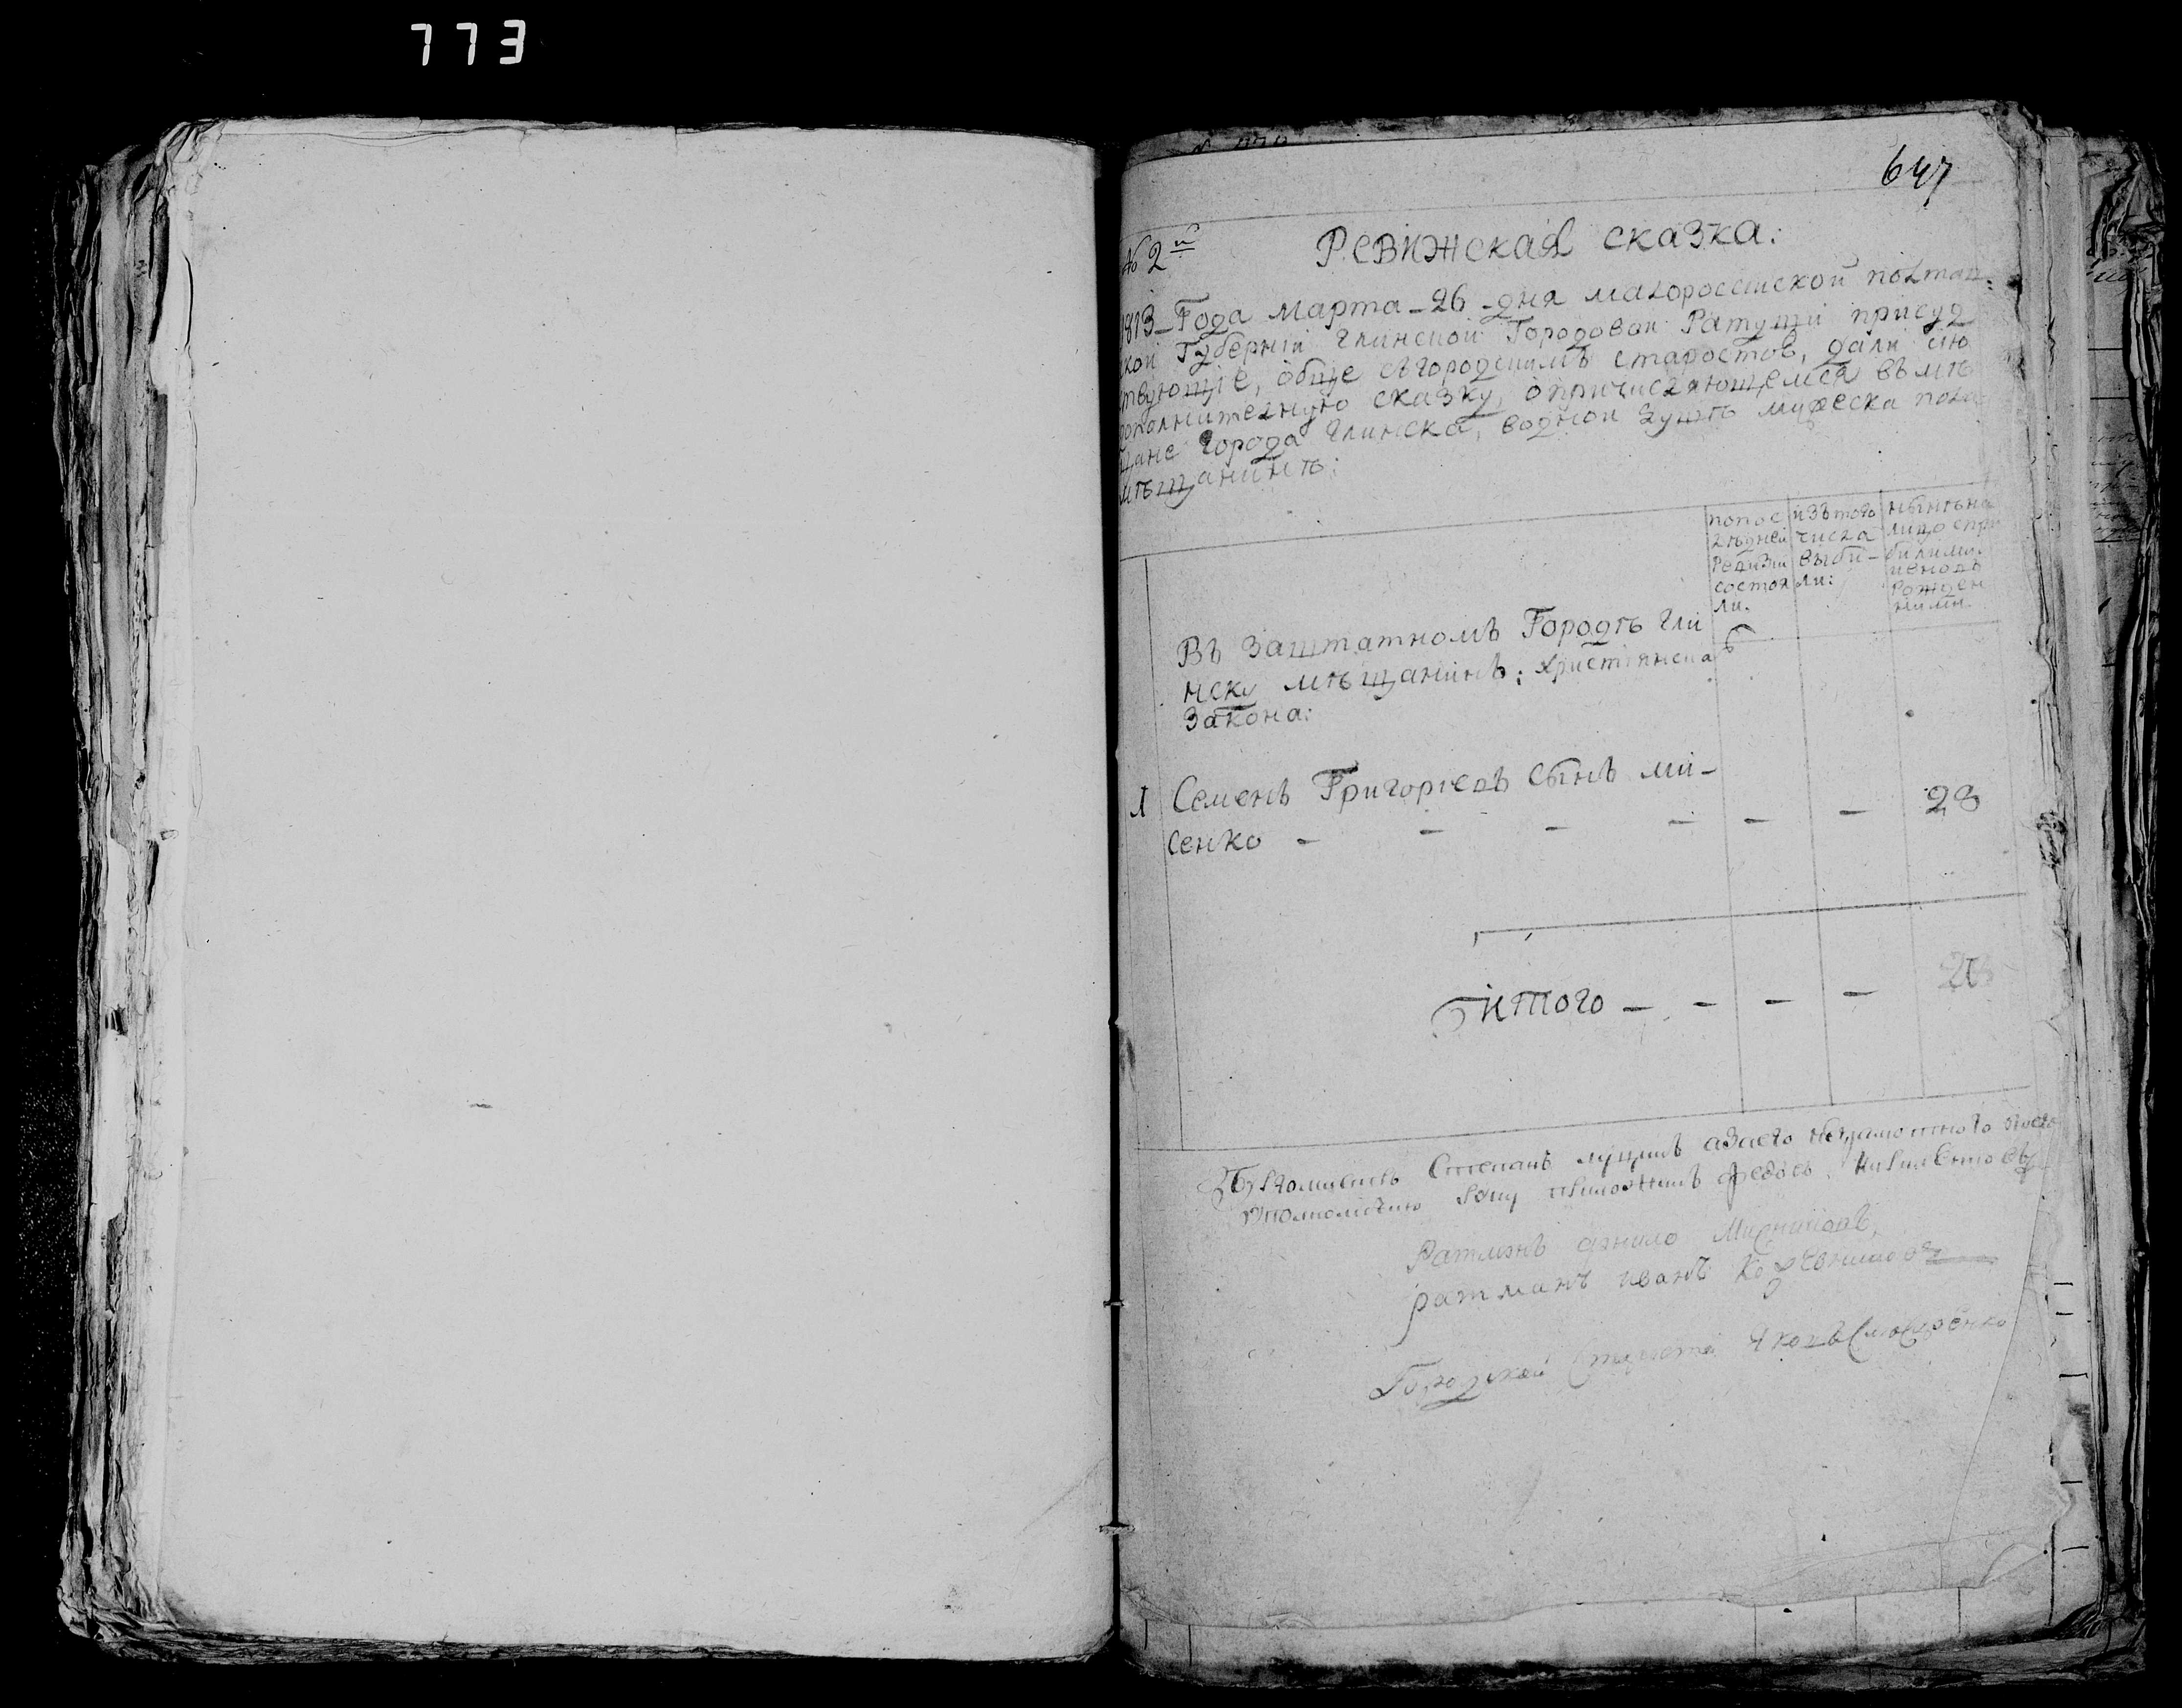 773
647
№ 2й
Ревижская сказка:
1813_Года марта_26_дня малороссийской полтав:
ской Губерніи Глинской Городовой Ратуши присуд
ствующіе, обще сгородскимъ старостою, дали сию
дополнителную сказку, опричисляющемся въ мѣ
щане города Глинска,водной душѣ мужеска пола
мѣщанинѣ:
попос
лѣдней
Ревизіи
состоя
ли.
изъ того
числа
выбы-
ли:
нынѣ на
лицо спри
былими.
иеново
Рожден
ними
Въ заштатномъ Городѣ Гли
нску мѣщанинъ: христіянска
закона:
1 Семенъ Григорьевъ сынъ ми-
сенко - - - - - - 28
Итого - - - -
Степанъ
Федоръ
Ратманъ данило
ратманъ иванъ
Городской староста Яковъ